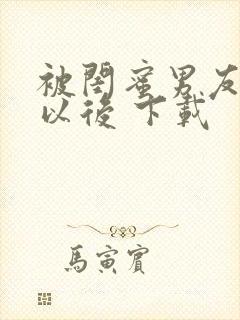 被閨蜜男友
以後 下載
馬寅賓